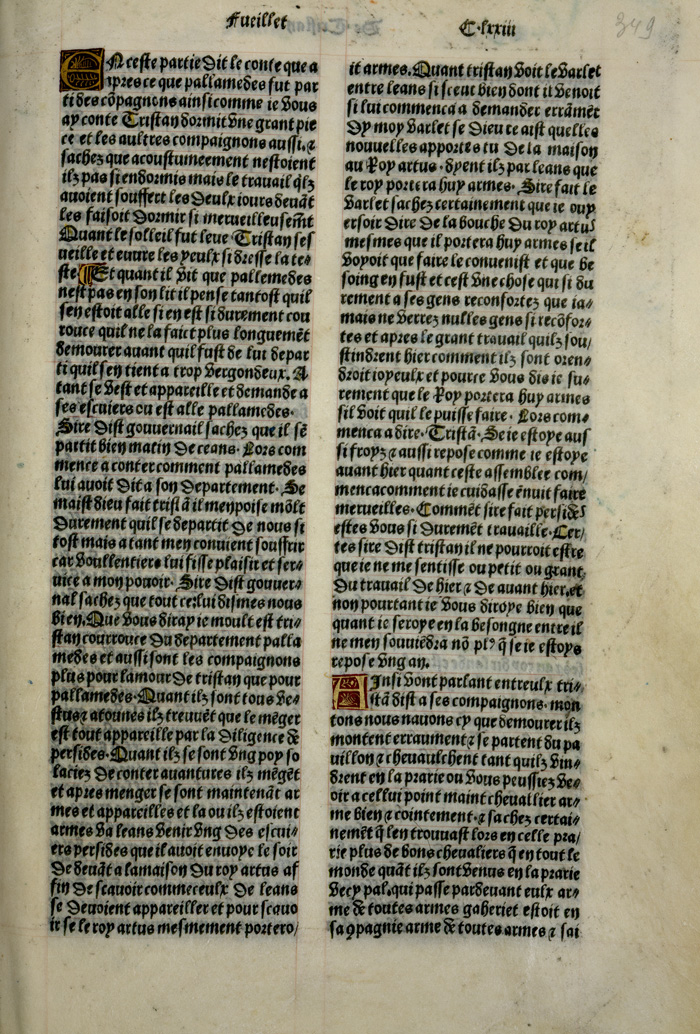 Fueillet C.lxxiii
349
EN ceste partie dit le conte que a
apres ce que pallamedes fut par
ti des cõpagnons ainsi comme ie vous
ay conte Tristan dormit vne grant pie
ce et les aultres compaignons aussi. ⁊
sachez que acoustumeement nestoient
ilz pas si endormis mais le trauail q̃lz
auoient souffert les deulx iours deuãt
les faisoit dormir si merueilleusemẽt
Quant le solleil fut leue Tristan ses
ueille et euure les yeulx si dresse la te⸗
ste ¶ Et quant il vit que pallamedes
nest pas en son lit il pense tantost quil
sen estoit alle si en est si durement cou
rouce quil ne la faict plus longuemẽt
demourer auant quil fust de lui depar
ti quil sen tient a trop vergondeux. A
tant se vest et appareille et demande a
ses escuiers ou est alle pallamedes.
Sire dist gouuernail sachez que il sẽ
partit bien matin de ceans. Lors com
mence a conter comment pallamedes
lui auoit dit a son departement. Se
maist dieu fait tristã il men poise mõlt
durement quil se departit de nous si
tost mais a tant men conuient souffrir
car voullentiers lui fisse plaisir et ser⸗
uice a mon pouoir. Sire dist gouuer⸗
nal sachez que tout ce lui dismes nous
bien. Que vous diray ie moult est tri⸗
stan courrouce du departement palla
medes et aussi sont les compaignons
plus pour lamour de tristan que pour
pallamedes. Quant ilz sont tous ve⸗
stus ⁊ atournes ilz treuuẽt que le mẽger
est tout appareille par la diligence de
persides. Quant ilz se sont vng poy so
laciez de conter auantures ilz mẽgẽt
et apres menger se sont maintenãt ar
mes et appareilles et la ou ilz estoient
armes va leans venir vng des escui⸗
ers persides que il auoit enuoye le soir
de deuãt a la maison du roy artus af
fin de scauoir comme ceulx de leans
se deuoient appareiller et pour scauo
ir se le roy artus mesmement portero/
it armes. Quant tristan voit le varlet
entre leans si sceut bien dont il venoit
si lui commenca a demander errãmẽt
Dy moy varlet se dieu ce aist quelles
nouuelles apportes tu de la maison
au Roy artus. dyent ilz par leans que
le roy portera huy armes. Sire fait le
varlet sachez certainement que ie ouy
ersoir dire de la bouche du roy artus
mesmes que il portera huy armes se il
voyoit que faire le conuenist et que be
soing en fust et cest vne chose qui si du
rement a ses gens reconfortez que ia⸗
mais ne verrez nulles gens si recõfor⸗
tes et apres le grant trauail quilz sou/
stindrent hier comment ilz sont oren⸗
droit ioyeulx et pource vous dis ie su⸗
rement que le Roy portera huy armes
sil voit quil le puisse faire. Lors com⸗
menca a dire. Tristã. Se ie estoye aus
si froyz ⁊ aussi repose comme ie estoye
auant hier quant ceste assemblee com/
menca comment ie cuidasse ẽnuit faire
merueilles. Commẽt sire fait persides
estes vous si duremẽt trauaille. Cer/
tes sire dist tristan il ne pourroit estre
que ie ne me sentisse ou petit ou grant
du trauail de hier ⁊ de auant hier. et
non pourtant ie vous diroye bien que
quant ie seroye en la besongne entre il
ne men souuiẽdra nõ plꝰ q̃ se ie estoye
repose vng an.
AInsi vont parlant entreulx tri⸗
stã dist a ses compaignons. mon
tons nous nauons cy que demourer ilz
montent erraument ⁊ se partent du pa
uillon ⁊ cheuaulchent tant quilz vin⸗
drent en la prarie ou vous peussiez ve⸗
oir a cellui point maint cheuallier ar⸗
me bien ⁊ cointement. ⁊ sachez certai⸗
nemẽt q̃ len trouuast lors en celle pra/
rie plus de bons cheualiers q̃ en tout le
monde quãt ilz sont venus en la prarie
vecy pal. qui passe par deuant eulx ar⸗
me de toutes armes gaheriet estoit en
sa ꝯpagnie arme de toutes armes ⁊ sai